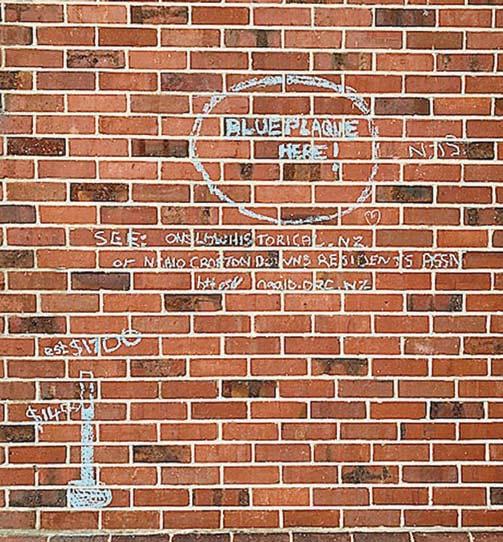 BLUE PLAQUE
HERE!
SEE: ONSLOWHISTORICAL.NZ
or NGAIO CROFTON DOWNS RESIDENTS ASSN
ngaio.org.nz
est $1700